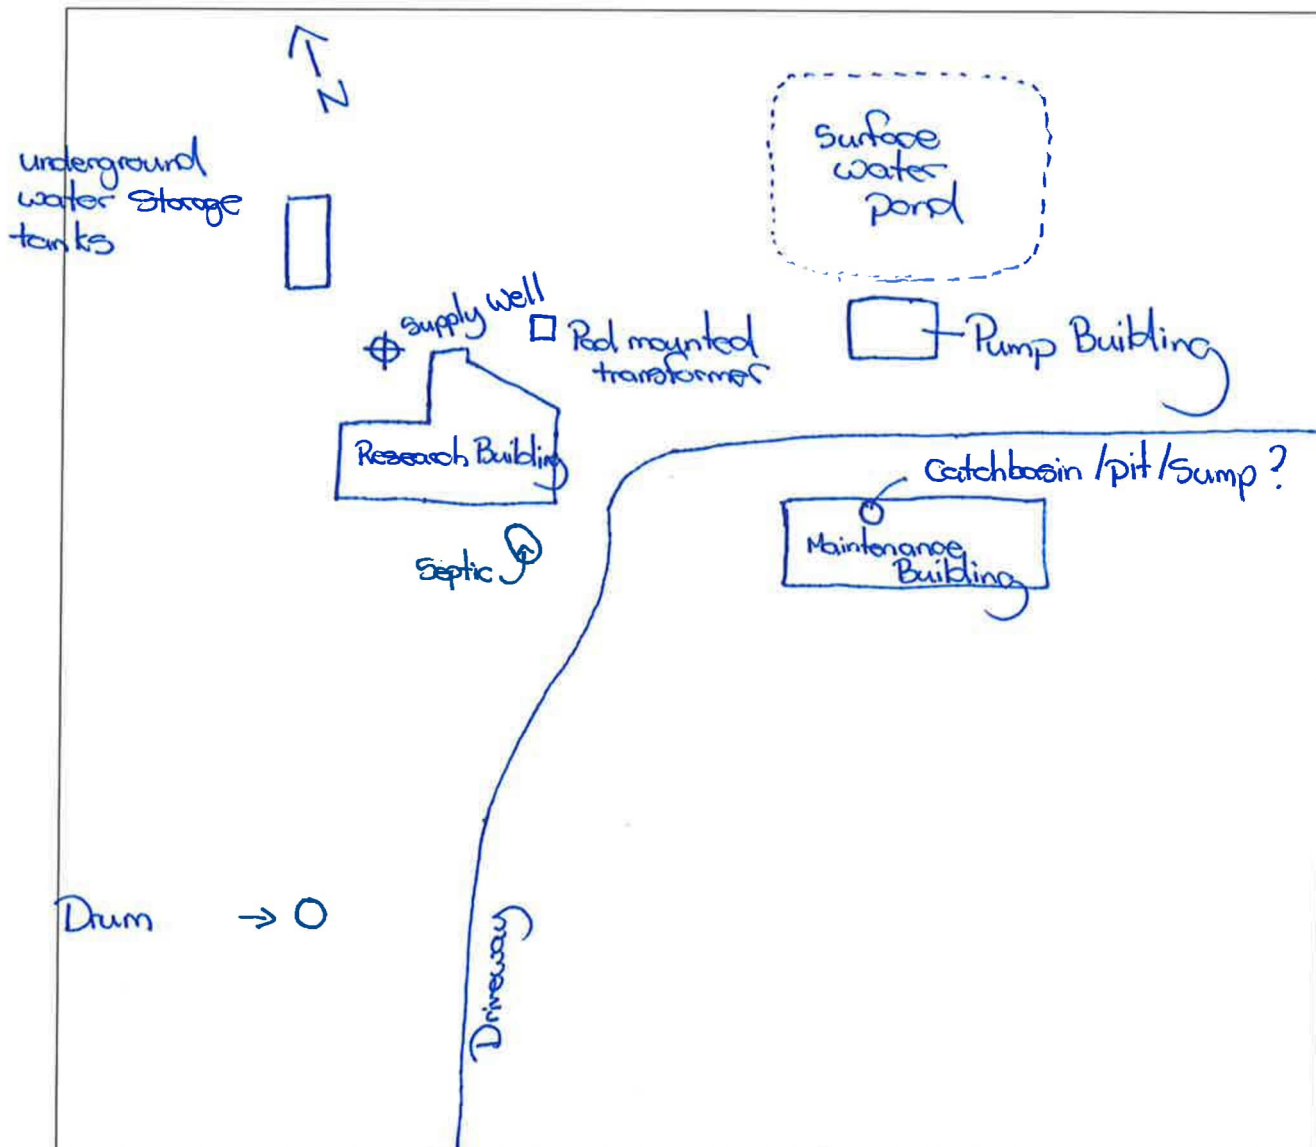 N
underground
water storage
tanks
Surface
water
pond
Supply well
Pad mounted
transformer
Pump Building
Research Building
Catchbasin/pit/sump?
Maintenance
Building
Septic
Drum
Driveway